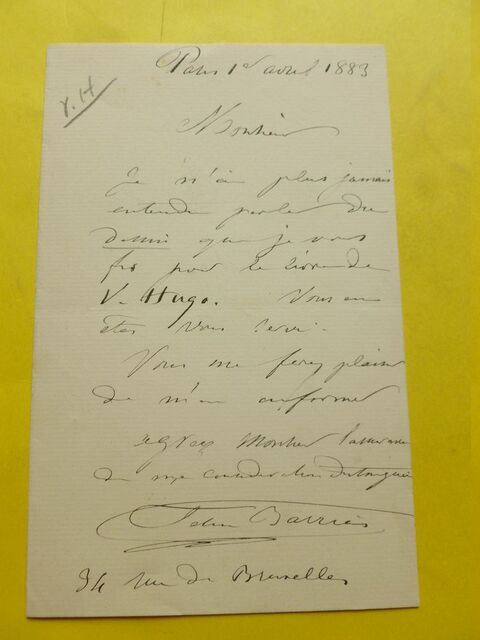 Paris 1er avril 1883
V. H
Monsieur
Je n'ai plus jamais
entendu parler du
dessin que je vous
fis pour le livre de
V. Hugo. Vous en
êtes vous servi.
Vous me ferez plaisir
de m'en informer
agréez Monsieur l'assurance
de ma considération distinguée
Félix Barrias
34 rue de Bruxelles